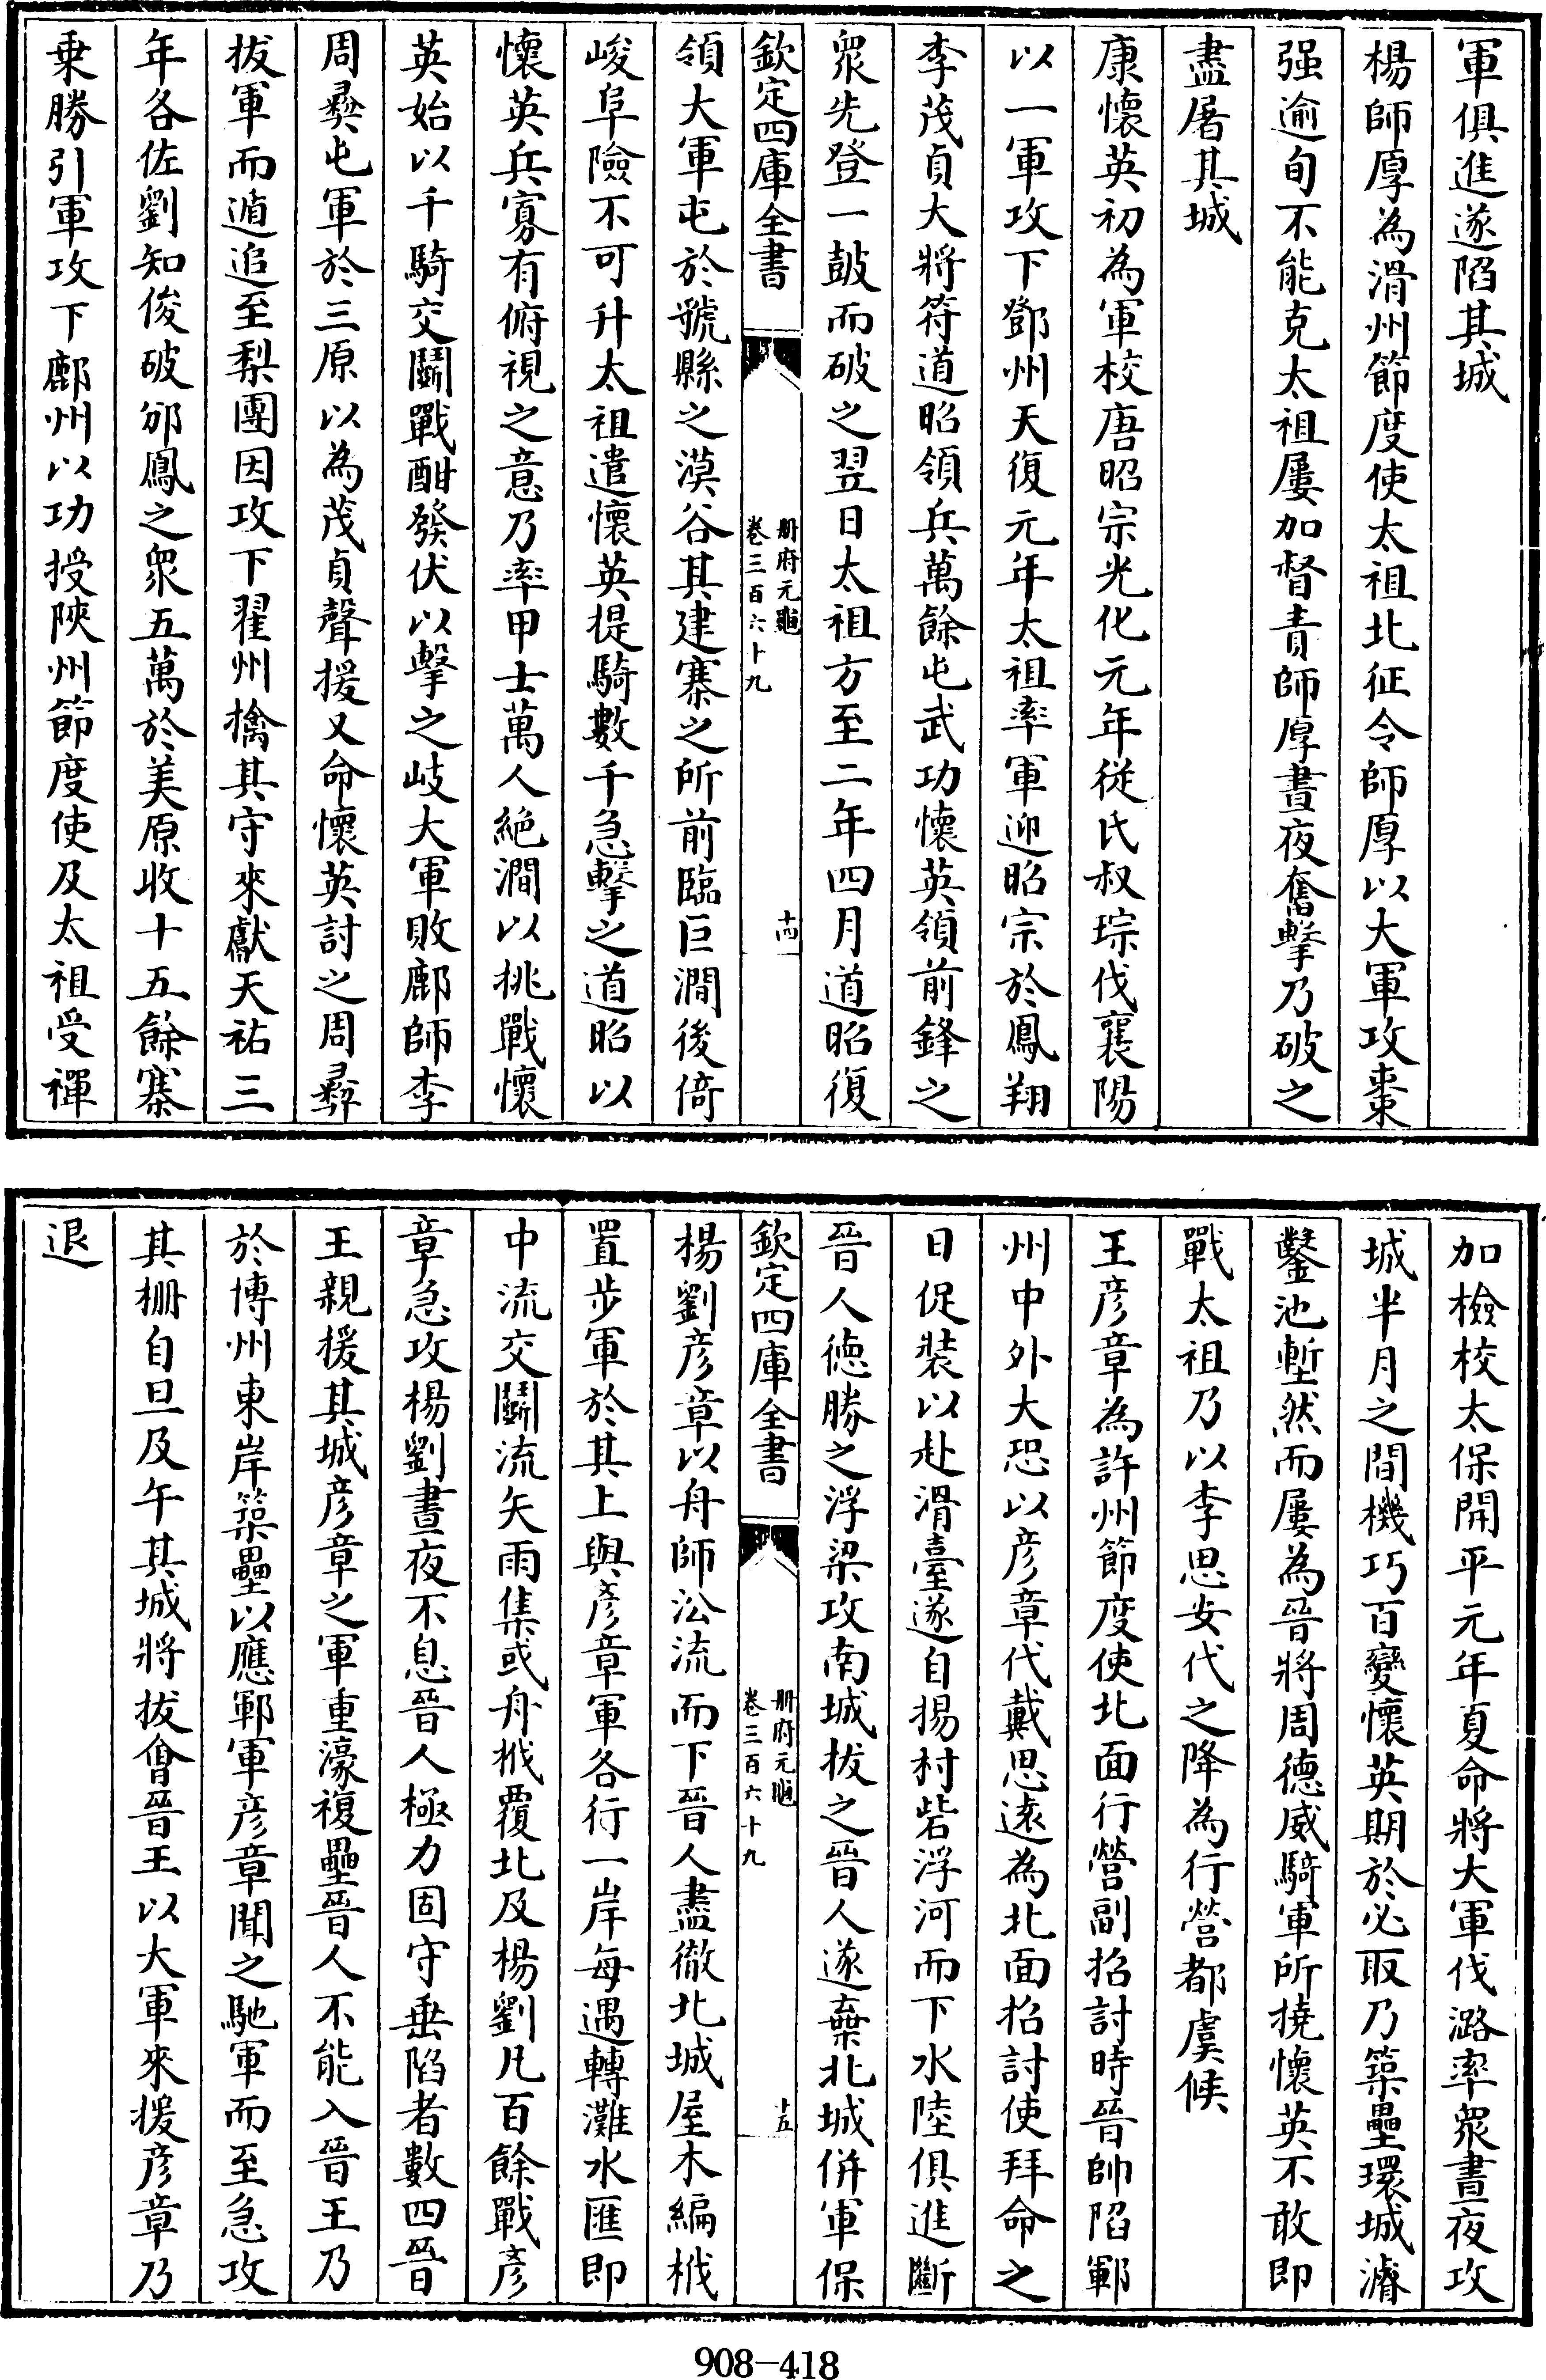 軍俱進遂陷其城
楊師厚為滑州節度使太祖北征令師厚以大軍攻棗
强逾旬不能克太祖屢加督責師厚晝夜奮擊乃破之
盡屠其城
康懷英初為軍校唐昭宗光化元年從氏叔琮伐襄陽
以一軍攻下鄧州天復元年太祖率軍迎昭宗於鳳翔
李茂貞大將符道昭領兵萬餘屯武功懷英領前鋒之
衆先登一鼓而破之翌日太祖方至二年四月道昭復
欽定四庫全書
册府元龜
卷三百六十九
十四
領大軍屯於虢縣之漠谷其建寨之所前臨巨澗後倚
峻阜險不可升太祖遣懷英提騎數千急擊之道昭以
懷英兵寡有俯視之意乃率甲士萬人絶澗以挑戰懷
英始以千騎交鬭戰酣發伏以擊之岐大軍敗鄜師李
周彞屯軍於三原以為茂貞聲援又命懷英討之周彞
拔軍而遁追至梨園因攻下翟州擒其守來獻天祐三
年各佐劉知俊破邠鳳之衆五萬於美原收十五餘寨
乗勝引軍攻下鄜州以功授陜州節度使及太祖受禪
加檢校太保開平元年夏命將大軍伐潞率衆晝夜攻
城半月之間機巧百變懷英期於必取乃築壘環城濬
鑿池塹然而屢為晉將周德威騎軍所撓懷英不敢即
戰太祖乃以李思安代之降為行營都虞候
王彦章為許州節度使北面行營副招討時晉帥陷鄆
州中外大恐以彦章代戴思遠為北面招討使拜命之
日促裝以赴滑臺遂自揚村砦浮河而下水陸俱進斷
晉人徳勝之浮梁攻南城拔之晉人遂棄北城併軍保
欽定四庫全書
册府元龜
卷三百六十九
十五
楊劉彦章以舟師沿流而下晉人盡徹北城屋木編栰
置步軍於其上與彦章軍各行一岸每遇轉灘水匯即
中流交鬭流矢雨集或舟栰覆北及楊劉凡百餘戰彦
章急攻楊劉晝夜不息晉人極力固守垂陷者數四晉
王親援其城彦章之軍重濠複壘晉人不能入晉王乃
於博州東岸築壘以應鄆軍彦章聞之馳軍而至急攻
其栅自旦及午其城將拔會晉王以大軍來援彦章乃
退
908-418